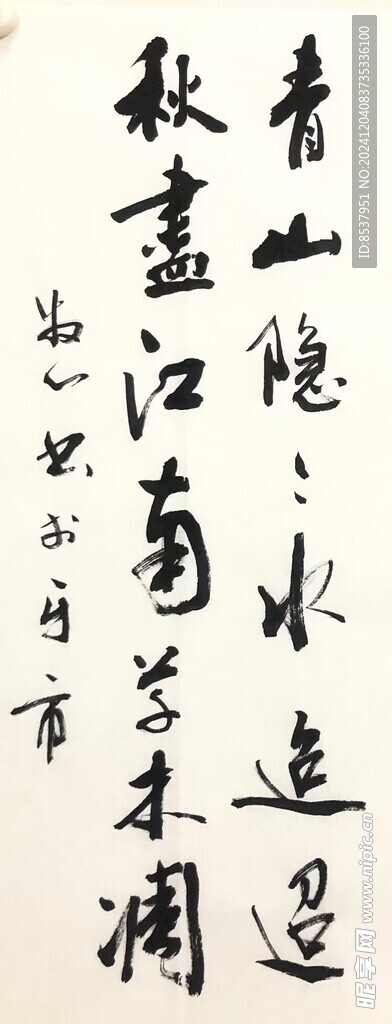 青山隐〻水迢迢
秋盡江南草木凋
心书于
ID:8537951 NO:20241204083735336100
昵享网 www.nipic.cn